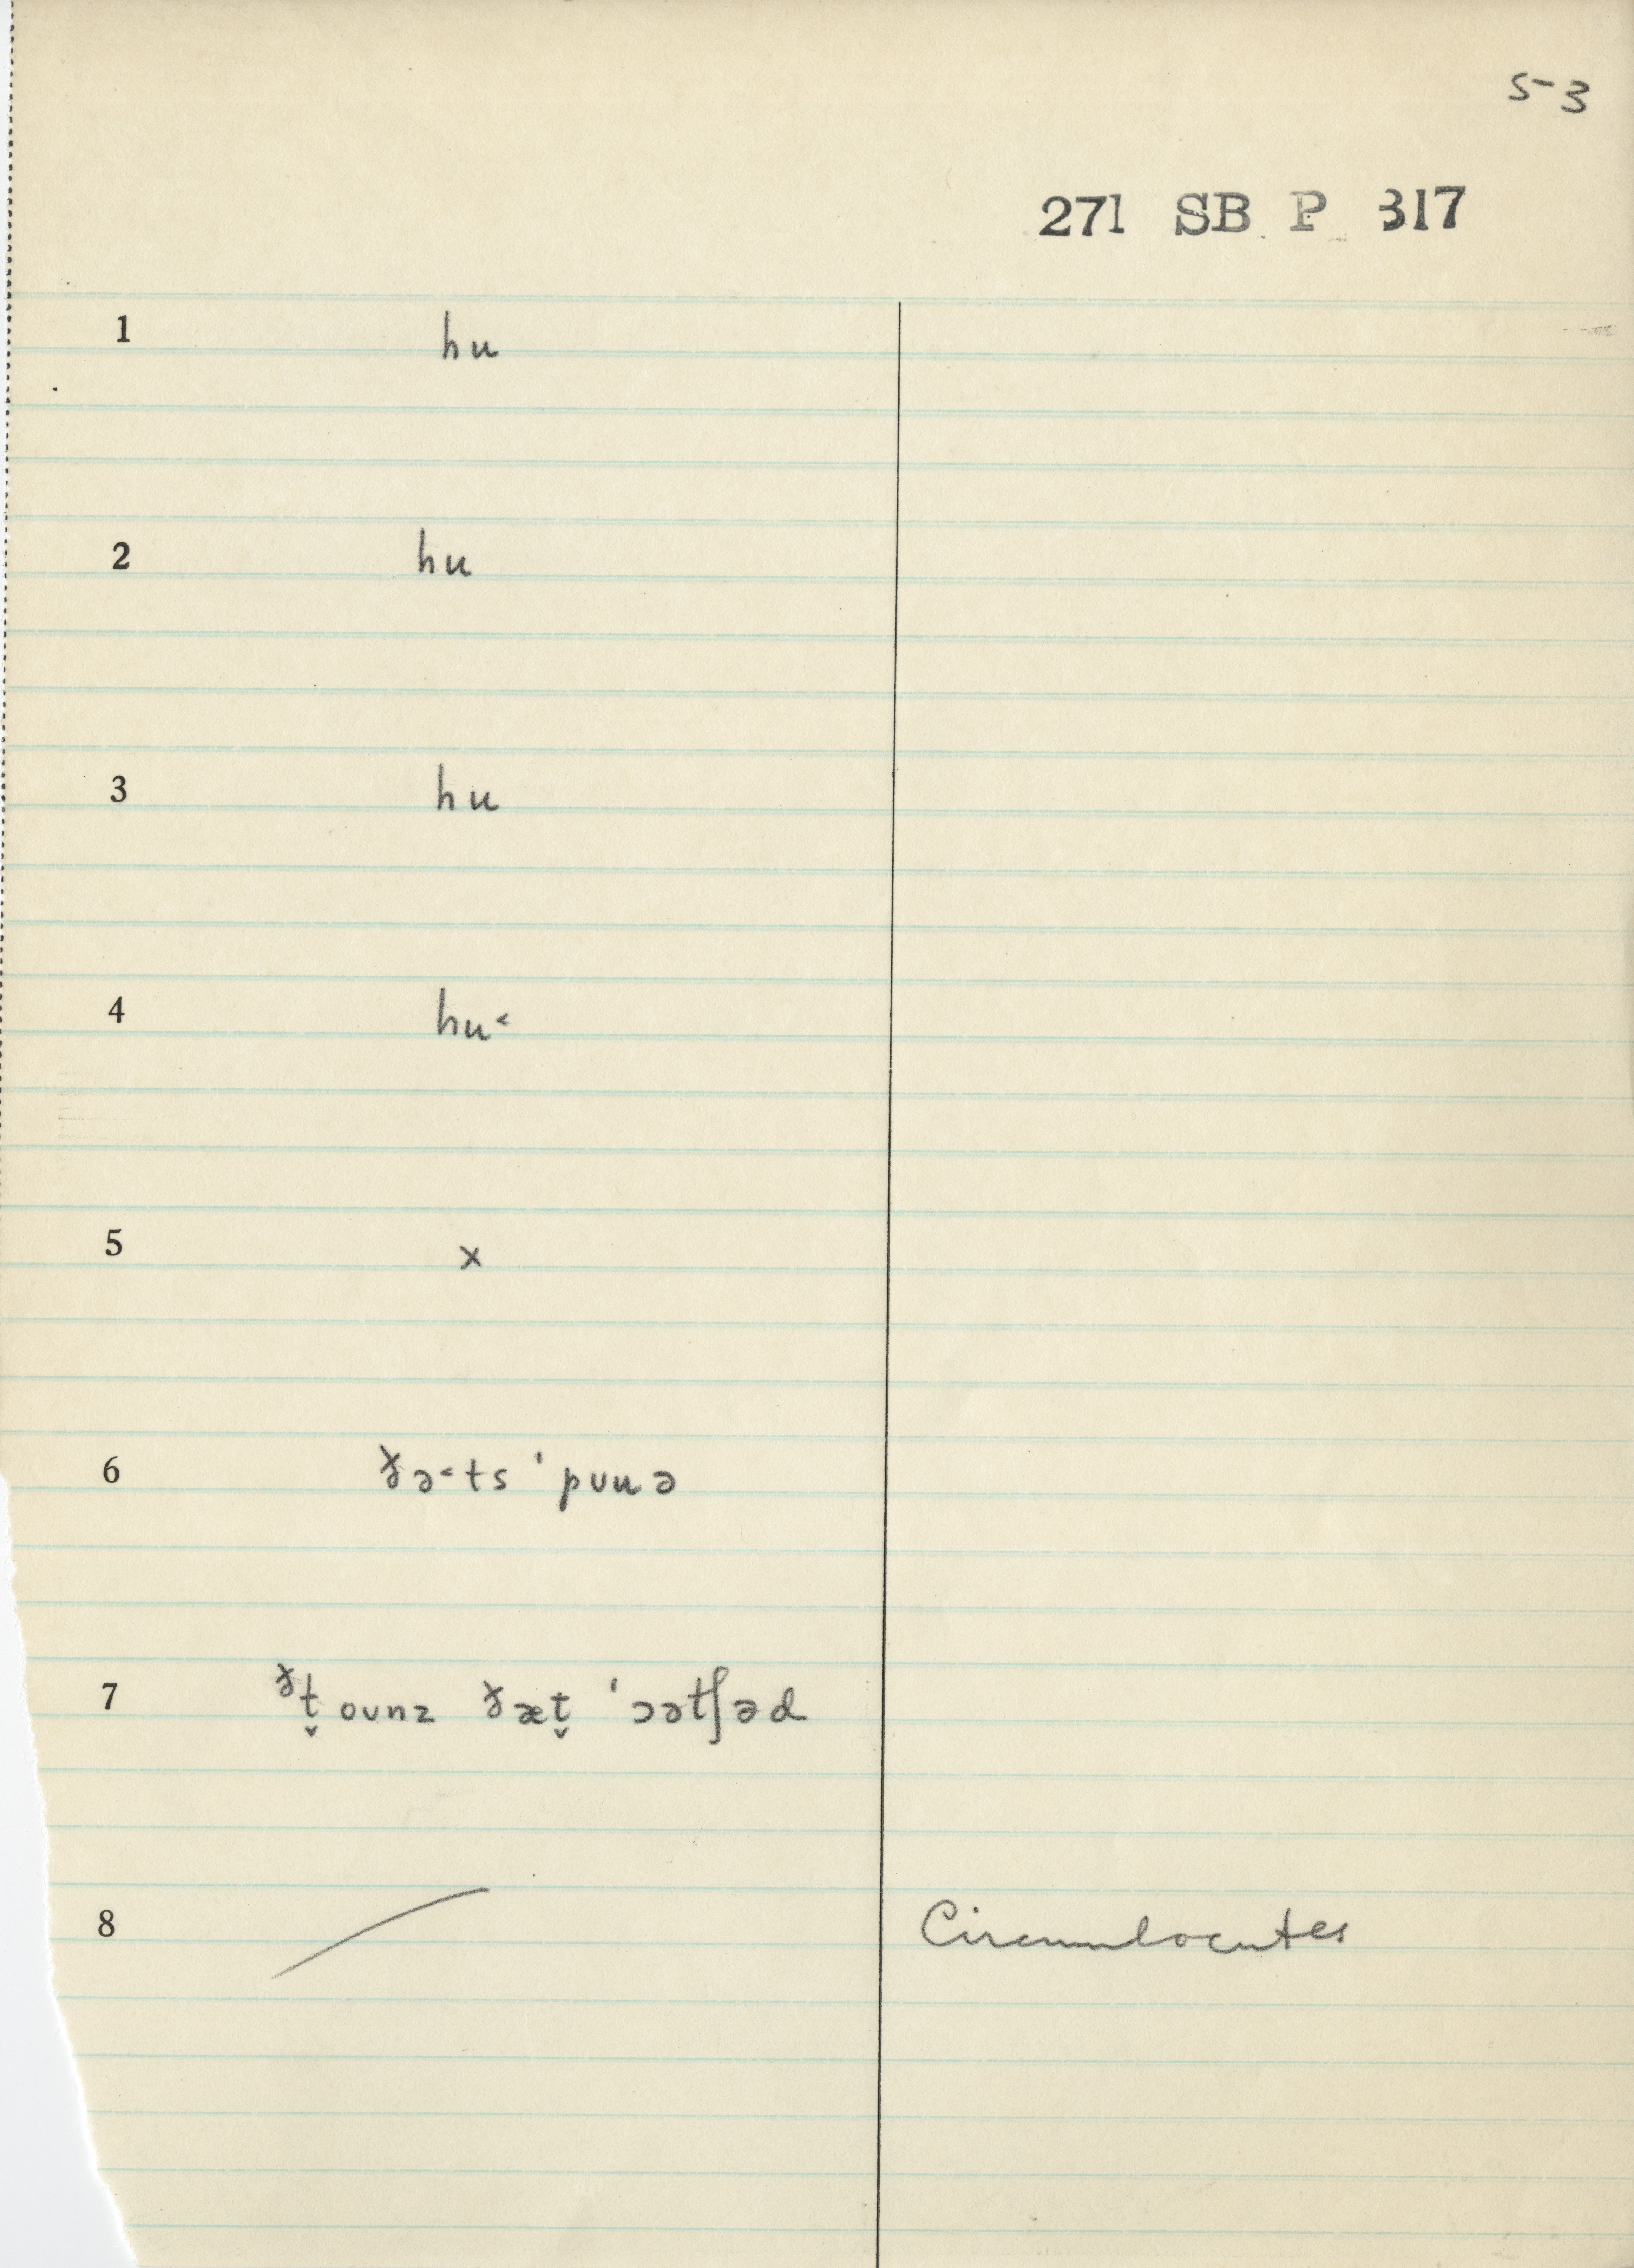 53
271 SB P 317
1 hu
2 hu
3 hu
4 hu˂
5 x
6 ðə˂ts ˈpuuə
7 ᶞt̬ ounz ðæt̬ ˈɔətʃəd
8 / Circumlocutes